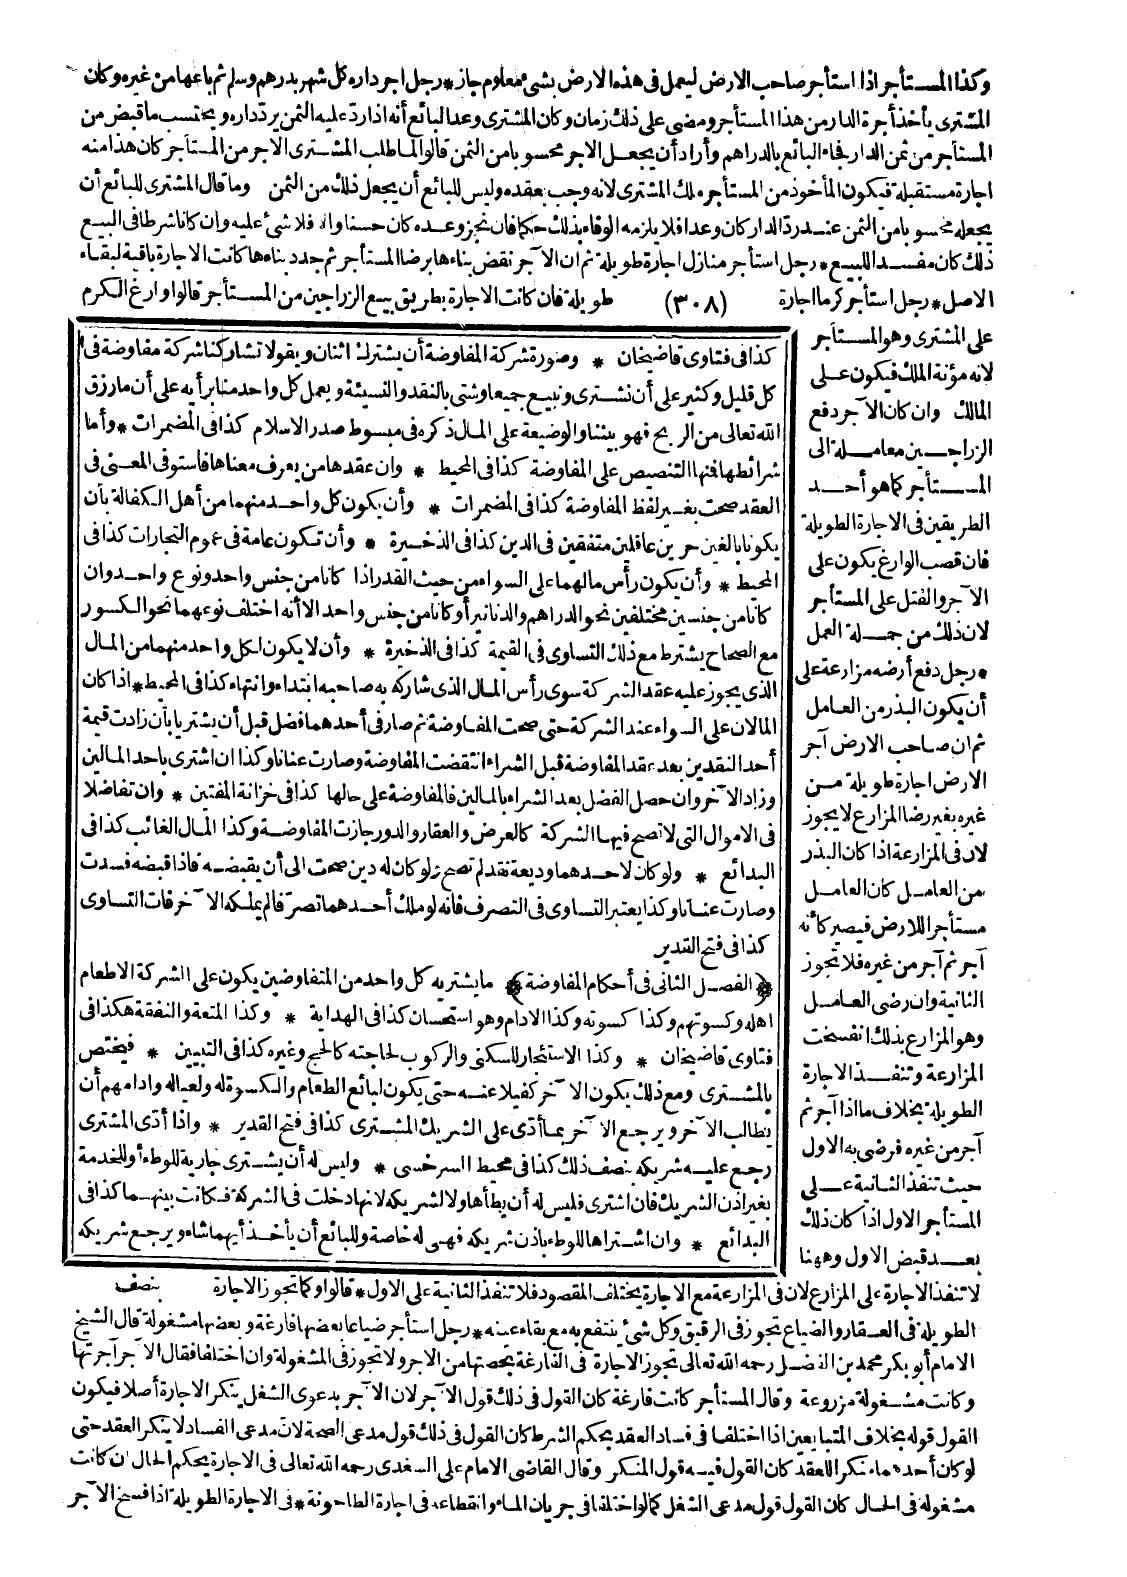 وكذا المستأجر اذا استأجر صاحب الارض ليعمل فى هذه الارض بشئ معلوم جاز * رجل اجر داره كل شهر بدرهم وسلم ثم باعها من غيره وكان
المشترى يأخذ أجرة الدار من هذا المستأجر ومضى على ذلك زمان وكان المشترى وعد البائع أنه اذا رد عليه الثمن يرد داره ويحتسب ما قبض من
المستأجر من ثمن الدار فجاء البائع بالدراهم وأراد أن يجعل الاجر محسوبا من الثمن قالوا لما طلب المشترى الاجر من المستأجر كان هذا منه
اجارة مستقبلة فيكون المأخوذ من المستأجر ملك المشترى لانه وجب بعقده وليس للبائع أن يجعل ذلك من الثمن وما قال المشترى للبائع أن
يجعله محسوبا من الثمن عند رد الدار كان وعدا فلا يلزمه الوفاء بذلك حكما فان نجز وعده كان حسنا والا فلا شئ عليه وان كانا شرطا فى البيع
ذلك كان مفسدا للبيع * رجل استأجر منازل اجارة طويلة ثم ان الآجر نقض بناءها برضا المستأجر ثم جدد بناءها كانت الاجارة باقية لبقاء
الاصل * رجل استأجر كرما اجارة (٣٠٨) طويلة فان كانت الاجارة بطريق بيع الزراجين من المستأجر قالوا وارغ الكرم
على المشترى وهو المستأجر
لانه مؤنة الملك فيكون على
المالك وان كان الآجر دفع
الزراجين معاملة الى
المستأجر كما هو أحد
الطريقين فى الاجارة الطويلة
فان قصب الوارغ يكون على
الآجر والفتل على المستأجر
لان ذلك من جملة العمل
* رجل دفع أرضه مزارعة على
أن يكون البذر من العامل
ثم ان صاحب الارض آجر
الارض اجارة طويلة من
غيره بغير رضا المزارع لا يجوز
لان فى المزارعة اذا كان البذر
من العامل كان العامل
مستأجرا للارض فيصير كأنه
آجر ثم آجر من غيره فلا تجوز
الثانية وان رضى العامل
وهو المزارع بذلك انفسخت
المزارعة وتنفذ الاجارة
الطويلة بخلاف ما اذا آجر ثم
آجر من غيره فرضى به الاول
حيث تنفذ الثانية على
المستأجر الاول اذا كان ذلك
بعد قبض الاول وههنا
كذا فى فتاوى قاضيخان * وصورة شركة المفاوضة أن يشترك اثنان ويقولا تشاركنا شركة مفاوضة فى
كل قليل وكثير على أن نشترى ونبيع جميعا وشتى بالنقد والنسيئة ويعمل كل واحد منا برأيه على أن ما رزق
الله تعالى من الربح فهو بيننا والوضيعة على المال ذكره فى مبسوط صدر الاسلام كذا فى المضمرات * وأما
شرائطها فمنها التنصيص على المفاوضة كذا فى المحيط * وان عقدها من يعرف معناها فاستوفى المعنى فى
العقد صحت بغير لفظ المفاوضة كذا فى المضمرات * وأن يكون كل واحد منهما من أهل الكفالة بأن
يكونا بالغين حرين عاقلين متفقين فى الدين كذا فى الذخيرة * وأن تكون عامة فى عموم التجارات كذا فى
المحيط * وأن يكون رأس مالهما على السواء من حيث القدر اذا كانا من جنس واحد ونوع واحد وان
كانا من جنسين مختلفين نحو الدراهم والدنانير أو كانا من جنس واحد الا أنه اختلف نوعهما نحو الكسور
مع الصحاح يشترط مع ذلك التساوى فى القيمة كذا فى الذخيرة * وأن لا يكون لكل واحد منهما من المال
الذى يجوز عليه عقد الشركة سوى رأس المال الذى شاركه به صاحبه ابتداء وانتهاء كذا فى المحيط * اذا كان
المالان على السواء عند الشركة حتى صحت المفاوضة ثم صار فى أحدهما فضل قبل أن يشتريا بأن زادت قيمة
أحد النقدين بعد عقد المفاوضة قبل الشراء انتقضت المفاوضة وصارت عنانا وكذا ان اشترى باحد المالين
وزاد الآخر وان حصل الفضل بعد الشراء بالمالين فالمفاوضة على حالها كذا فى خزانة المفتين * وان تفاضلا
فى الاموال التى لا تصح فيها الشركة كالعرض والعقار والدور جازت المفاوضة وكذا المال الغائب كذا فى
البدائع * ولو كان لاحدهما وديعة نقد لم تصح ولو كان له دين صحت الى أن يقبضه فاذا قبضه فسدت
وصارت عنانا وكذا يعتبر التساوى فى التصرف فانه لو ملك أحدهما تصرفا لم يملكه الآخر فات التساوى
كذا فى فتح القدير
﴿الفصل الثانى فى أحكام المفاوضة﴾ ما يشتريه كل واحد من المتفاوضين يكون على الشركة الا طعام
اهله وكسوتهم وكذا كسوته وكذا الادام وهو استحسان كذا فى الهداية * وكذا المتعة والنفقة هكذا فى
فتاوى قاضيخان * وكذا الاستئجار للسكنى والركوب لحاجته كالحج وغيره كذا فى التبيين * فيختص
بالمشترى ومع ذلك يكون الآخر كفيلا عنه حتى يكون لبائع الطعام والكسوة له ولعياله وادامهم أن
يطالب الآخر ويرجع الآخر بما أدى على الشريك المشترى كذا فى فتح القدير * واذا أدى المشترى
رجع عليه شريكه بنصف ذلك كذا فى محيط السرخسى * وليس له أن يشترى جارية للوطء أو للخدمة
بغير اذن الشريك فان اشترى فليس له أن يطأها ولا لشريكه لانها دخلت فى الشركة فكانت بينهما كذا فى
البدائع * وان اشتراها للوطء باذن شريكه فهى له خاصة وللبائع أن يأخذ أيهما شاء ويرجع شريكه
بنصف
لا تنفذ الاجارة على المزارع لان فى المزارعة مع الاجارة يختلف المقصود فلا تنفذ الثانية على الاول * قالوا وكما تجوز الاجارة
الطويلة فى العقار والضياع تجوز فى الرقيق وكل شئ ينتفع به مع بقاء عينه * رجل استأجر ضياعا بعضها فارغة وبعضها مشغولة قال الشيخ
الامام أبو بكر محمد بن الفضل رحمه الله تعالى تجوز الاجارة فى الفارغة بحصتها من الاجر ولا تجوز فى المشغولة وان اختلفا فقال الآجر آجرتها
وكانت مشغولة مزروعة وقال المستأجر كانت فارغة كان القول فى ذلك قول الآجر لان الآجر بدعوى الشغل ينكر الاجارة أصلا فيكون
القول قوله بخلاف المتبايعين اذا اختلفا فى فساد العقد بحكم الشرط كان القول فى ذلك قول مدعى الصحة لان مدعى الفساد لا ينكر العقد حتى
لو كان أحدهما منكرا للعقد كان القول فيه قول المنكر وقال القاضى الامام على السغدى رحمه الله تعالى فى الاجارة يحكم الحال ان كانت
مشغولة فى الحال كان القول قول مدعى الشغل كما لو اختلفا فى جريان الماء وانقطاعه فى اجارة الطاحونة * فى الاجارة الطويلة اذا فسخ الآجر